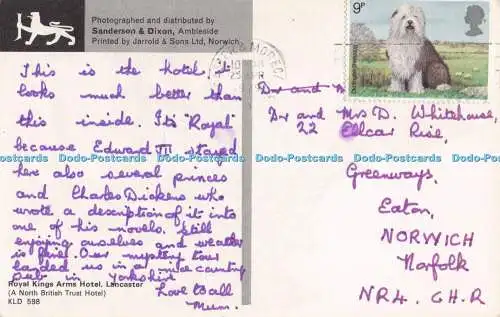 Photographed and distributed by
Sanderson & Dixon, Ambleside
Printed by Jarrold & Sons Ltd, Norwich
9P
This is the hotel. It
looks much better than
this inside. Its "Royal"
because Edward VII stayed
here also several princes
and Charles Dickens who
wrote a description of it into
one of his novels. Still
enjoying ourselves and weather
is fine. Our mystery tour
landed us in a nice country
Pub in Yorkshire
Love to all
Mum.
Royal Kings Arms Hotel, Lancaster
(A North British Trust Hotel)
KLD 598
Dr and M
Dr and Mrs D. Whitehouse,
22 Ellcar Rise,
Greenways,
Eaton,
NORWICH
Norfolk
NR4. 6H.R
Dodo-Postcards Dodo-Postcards Dodo-Postcards Dodo-Postcards Dodo-Postcards